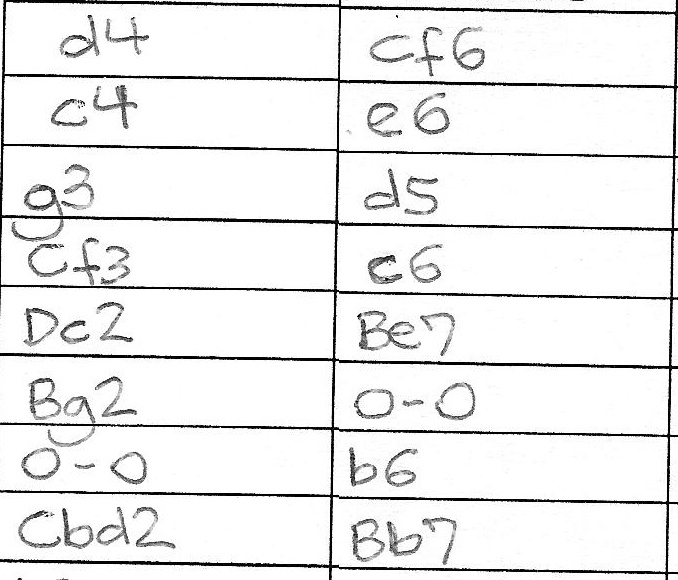 d4 Cf6
c4 e6
g3 d5
Cf3 c6
Dc2 Be7
Bg2 0-0
0-0 b6
Cbd2 Bb7